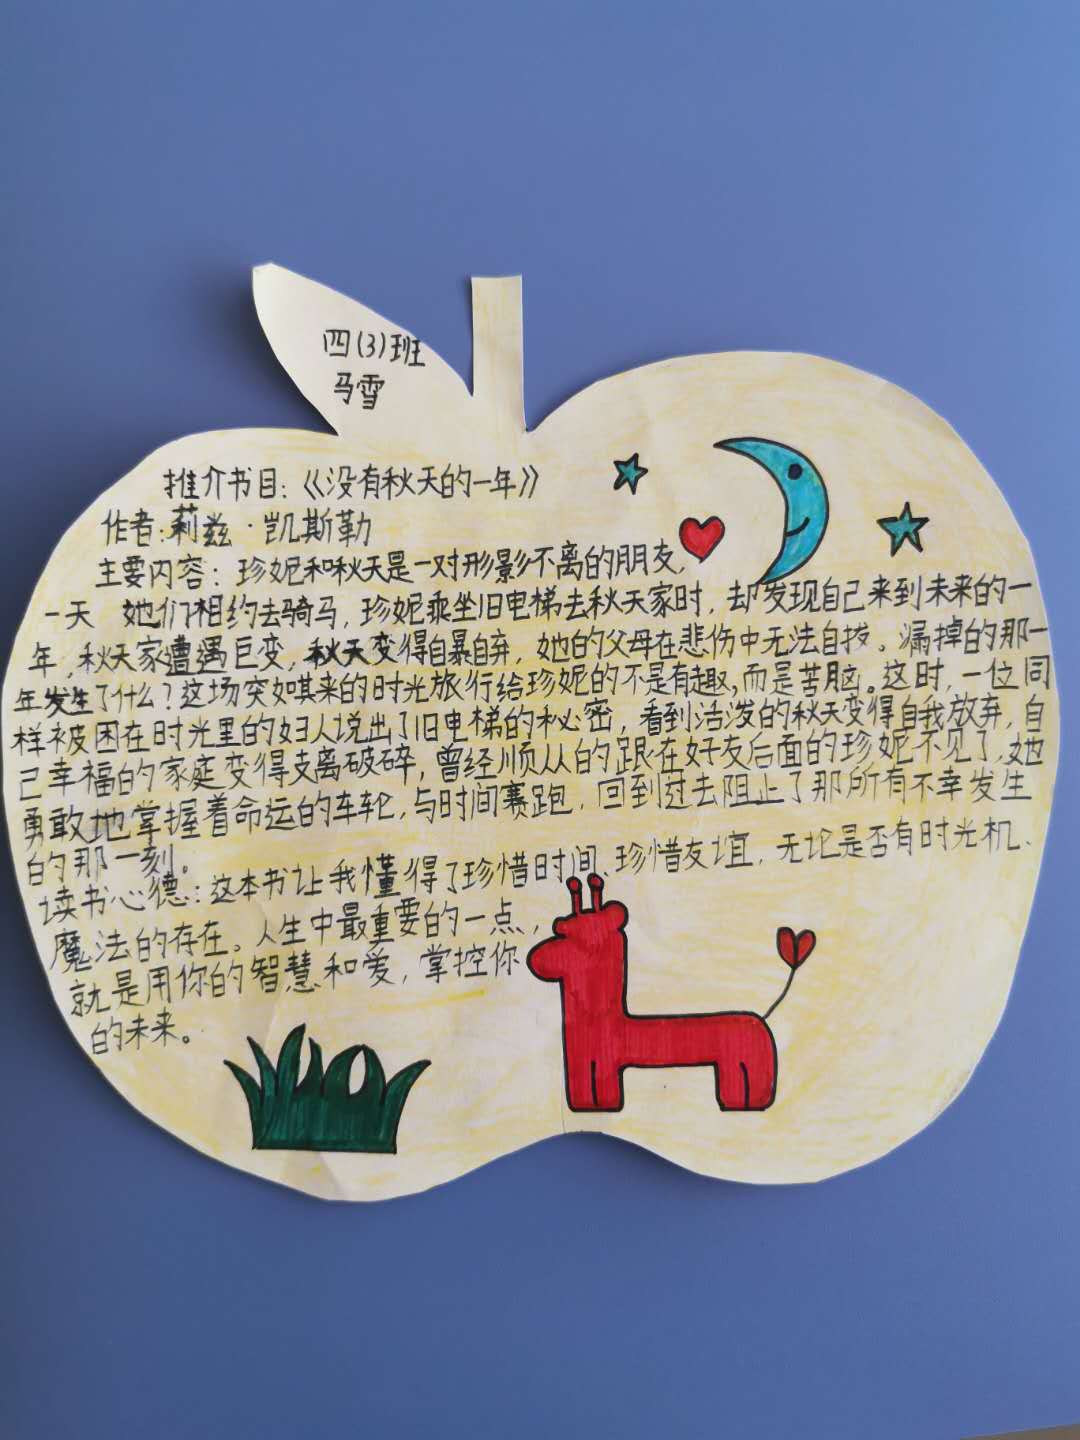 四(3)班
马雪
推介书目:《没有秋天的一年》
作者:莉兹·凯斯勒
主要内容:珍妮和秋天是一对形影不离的朋友,
一天 她们相约去骑马,珍妮乘坐旧电梯去秋天家时,却发现自己来到未来的一
年,秋天家遭遇巨变,秋天变得自暴自弃,她的父母在悲伤中无法自拔。漏掉的那一
年发生了什么?这场突如其来的时光旅行给珍妮的不是有趣,而是苦脑。这时,一位同
样被困在时光里的妇人说出了旧电梯的秘密,看到活泼的秋天变得自我放弃,自
己幸福的家庭变得支离破碎,曾经顺从的跟在好友后面的珍妮不见了,她
勇敢地掌握着命运的车轮,与时间赛跑,回到过去阻止了那所有不幸发生
的那一刻。
读书心德:这本书让我懂得了珍惜时间、珍惜友谊,无论是否有时光机、
魔法的存在。人生中最重要的一点,
就是用你的智慧和爱,掌控你
的未来。